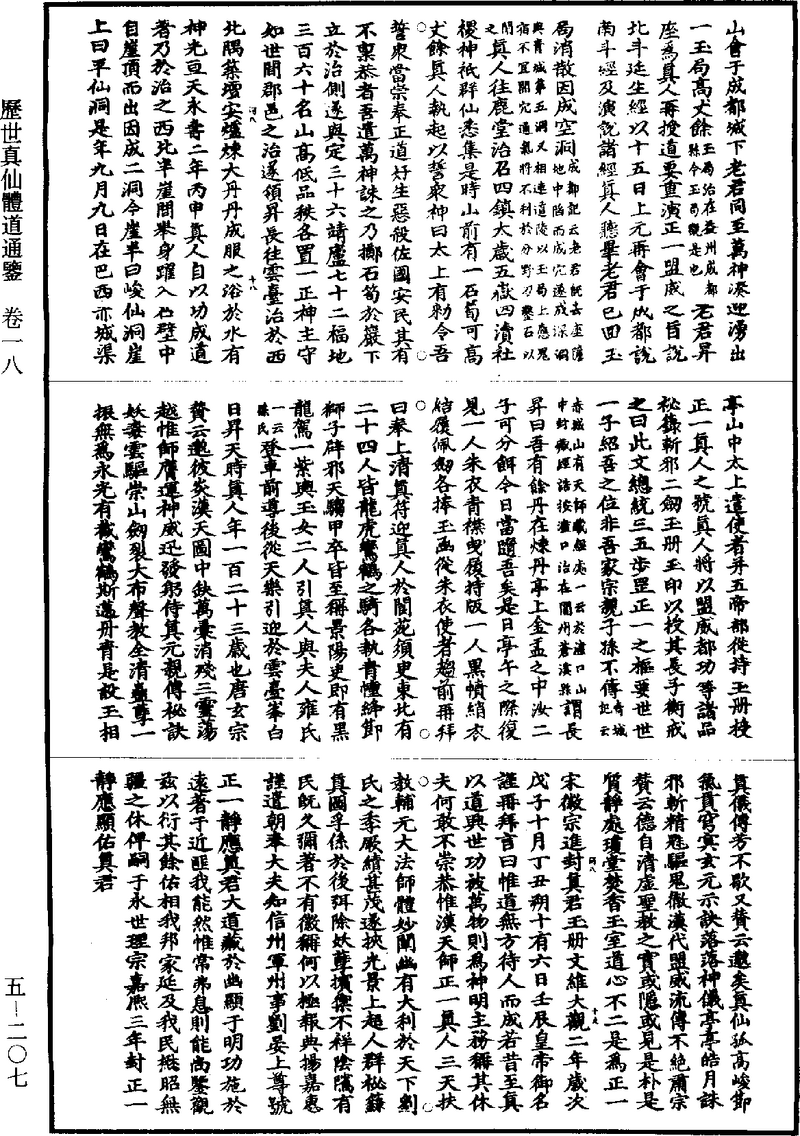 歷世真仙體道通鑒　卷一八
五—二〇七
山會于成都城下老君同至萬神湊迎湧出
一玉局高丈餘玉局治在益州成都縣今玉局觀是也老君昇
座為真人再授道要重演正一盟威之旨說
北斗延生經以十五日上元再會于成都說
南斗經及演說諸經真人聽畢老君已回玉
局消散因成空洞成都記云老君既去座隱地中陷而成穴遂成深洞
與青城第五洞又相連道陵以玉局上應鬼宿不宜開穴通氣將不利於分野乃鑿石以
閉之真人往鹿堂治召四鎮大歲五嶽四瀆社
稷神祇群仙悉集是時山前有一石筍可高
丈餘真人執起以誓衆神曰太上有勑令吾
誓衆當崇奉正道好生惡殺佐國安民其有
不稟恭者吾遣萬神誅之乃擲石筍於巖下
立於治側遂與定三十六靖廬七十二福地
三百六十名山高低品秩各置一正神主守
如世間郡邑之治遂領昇長往雲臺治於西
北隅築壇安爐煉大丹丹成服之浴於水有
神光亘天永壽二年丙申真人自以功成道
著乃於治之西北半崖間舉身躍入石壁中
自崖頂而出因成二洞今崖半曰峻仙洞崖
上曰平仙洞是年九月九日在巴西赤城渠
亭山中太上遣使者并五帝部從持玉册授
正一真人之號真人將以盟威都功等諸品
秘籙斬邪二劍玉册玉印以授其長子衡戒
之曰此文總統三五步罡正一之樞要世世
一子紹吾之位非吾家宗親子孫不傳
謂長
昇曰吾有餘丹在煉丹亭上金盂之中汝二
子可分餌今日當隨吾矣是日亭午之際復
見一人朱衣青襟曳履持版一人黑幘綃衣
結履佩劍各捧玉函從朱衣使者趨前再拜
曰奉上清真符迎真人於閬苑須臾東北有
二十四人皆龍虎鸞鶴之騎各執青幢絳節
獅子辟邪天騶甲卒皆至稱景陽吏即有黑
龍駕一紫輿玉女二人引真人與夫人雍氏
一云孫氏登車前導後從天樂引迎於雲臺峯白
日昇天時真人年一百二十三歲也唐玄宗
贊云邈彼炎漢天圖中缺萬彙消殘三靈蕩
越惟師膺運神威迅發躬侍真元親傳秘訣
妖毒雲驅崇山劍裂大布聲教全清臺孽一
振無為永光有截鸞鶴斯邁丹青是設玉相
真儀傳芳不歇又贊云邈矣真仙孤高峻節
氣貫穹冥玄元示訣落落神儀亭亭皓月誅
邪斬精魅驅鬼徹漢代盟威流傳不絕肅宗
贊云德自清虛聖教之實或隱或見是朴是
質靜處瓊堂焚香玉室道心不二是為正一
宋徽宗進封真君玉册文維大觀二年歲次
戊子十月丁丑朔十有六日壬辰皇帝御名
謹再拜言曰惟道無方待人而成若昔至真
以道興世功被萬物則為神明主務稱其休
夫何敢不崇恭惟漢天師正一真人三天扶
教輔元大法師體妙闡幽有大利於天下劉
氏之季厥績甚茂遂挾光景上超人群秘籙
真圖孚係於後弭除妖孽擯禦不祥陰騭有
民既久彌著不有徽稱何以極報典揚嘉惠
謹遣朝奉大夫知信州軍州事劉晏上尊號
正一靜應真君大道藏於幽顯于明功施於
遠著于近匪我能然惟常弗息則能尚鑒觀
茲以衍其餘佑相我邦家延及我民樅昭無
疆之休俾嗣于永世理宗嘉熙三年封正一
靜應顯佑真君